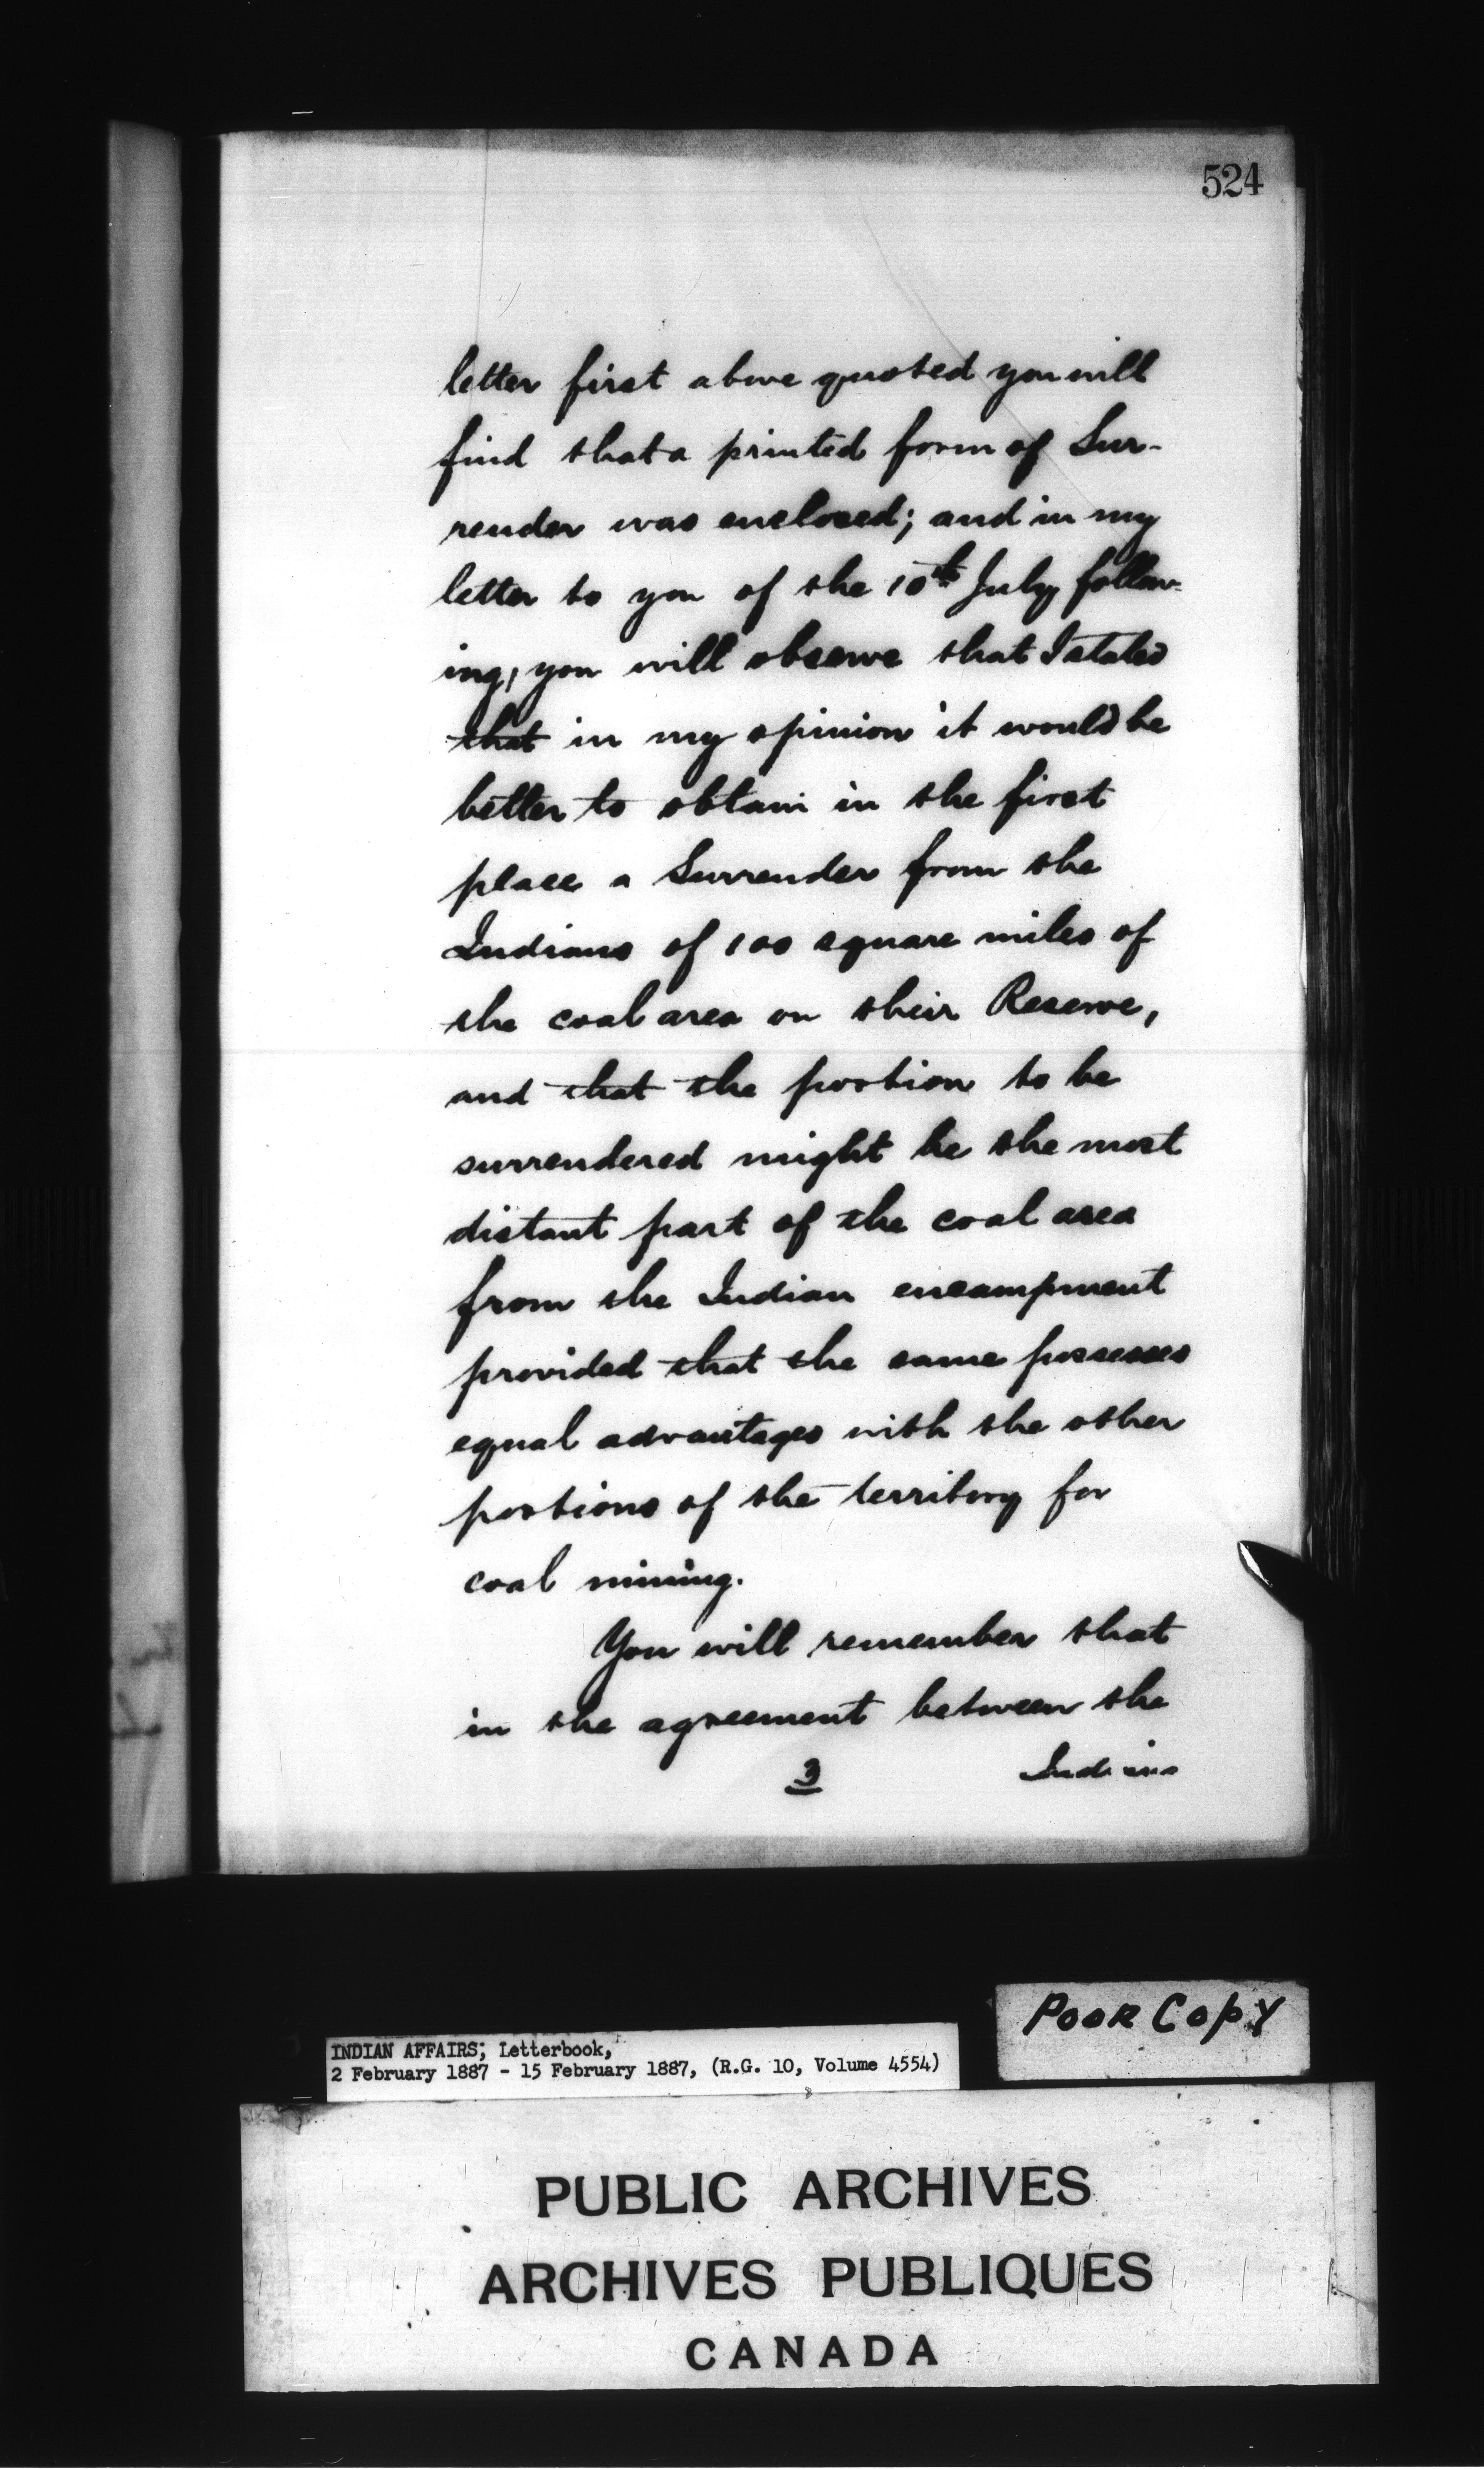 524
letter first above quoted you will
find that a printed form of Sur-
render was enclosed; and in my
letter to you of the 10th July follow-
ing, you will observe that I stated
that in my opinion it would be
better to obtain in the first
place a Surrender from the
Indians of 100 square miles of
the coal area on their Reserve,
and that the portion to be
surrendered might be the most
distant part of the coal area
from the Indian encampment
provided that the same possesses
equal advantages with the other
portions of the territory for
coal mining.
You will remember that
in the agreement between the
3 Indians
POOR COPY
INDIAN AFFAIRS; Letterbook,
2 February 1887 - 15 February 1887, (R.G. 10, Volume 4554)
PUBLIC ARCHIVES
ARCHIVES PUBLIQUES
CANADA